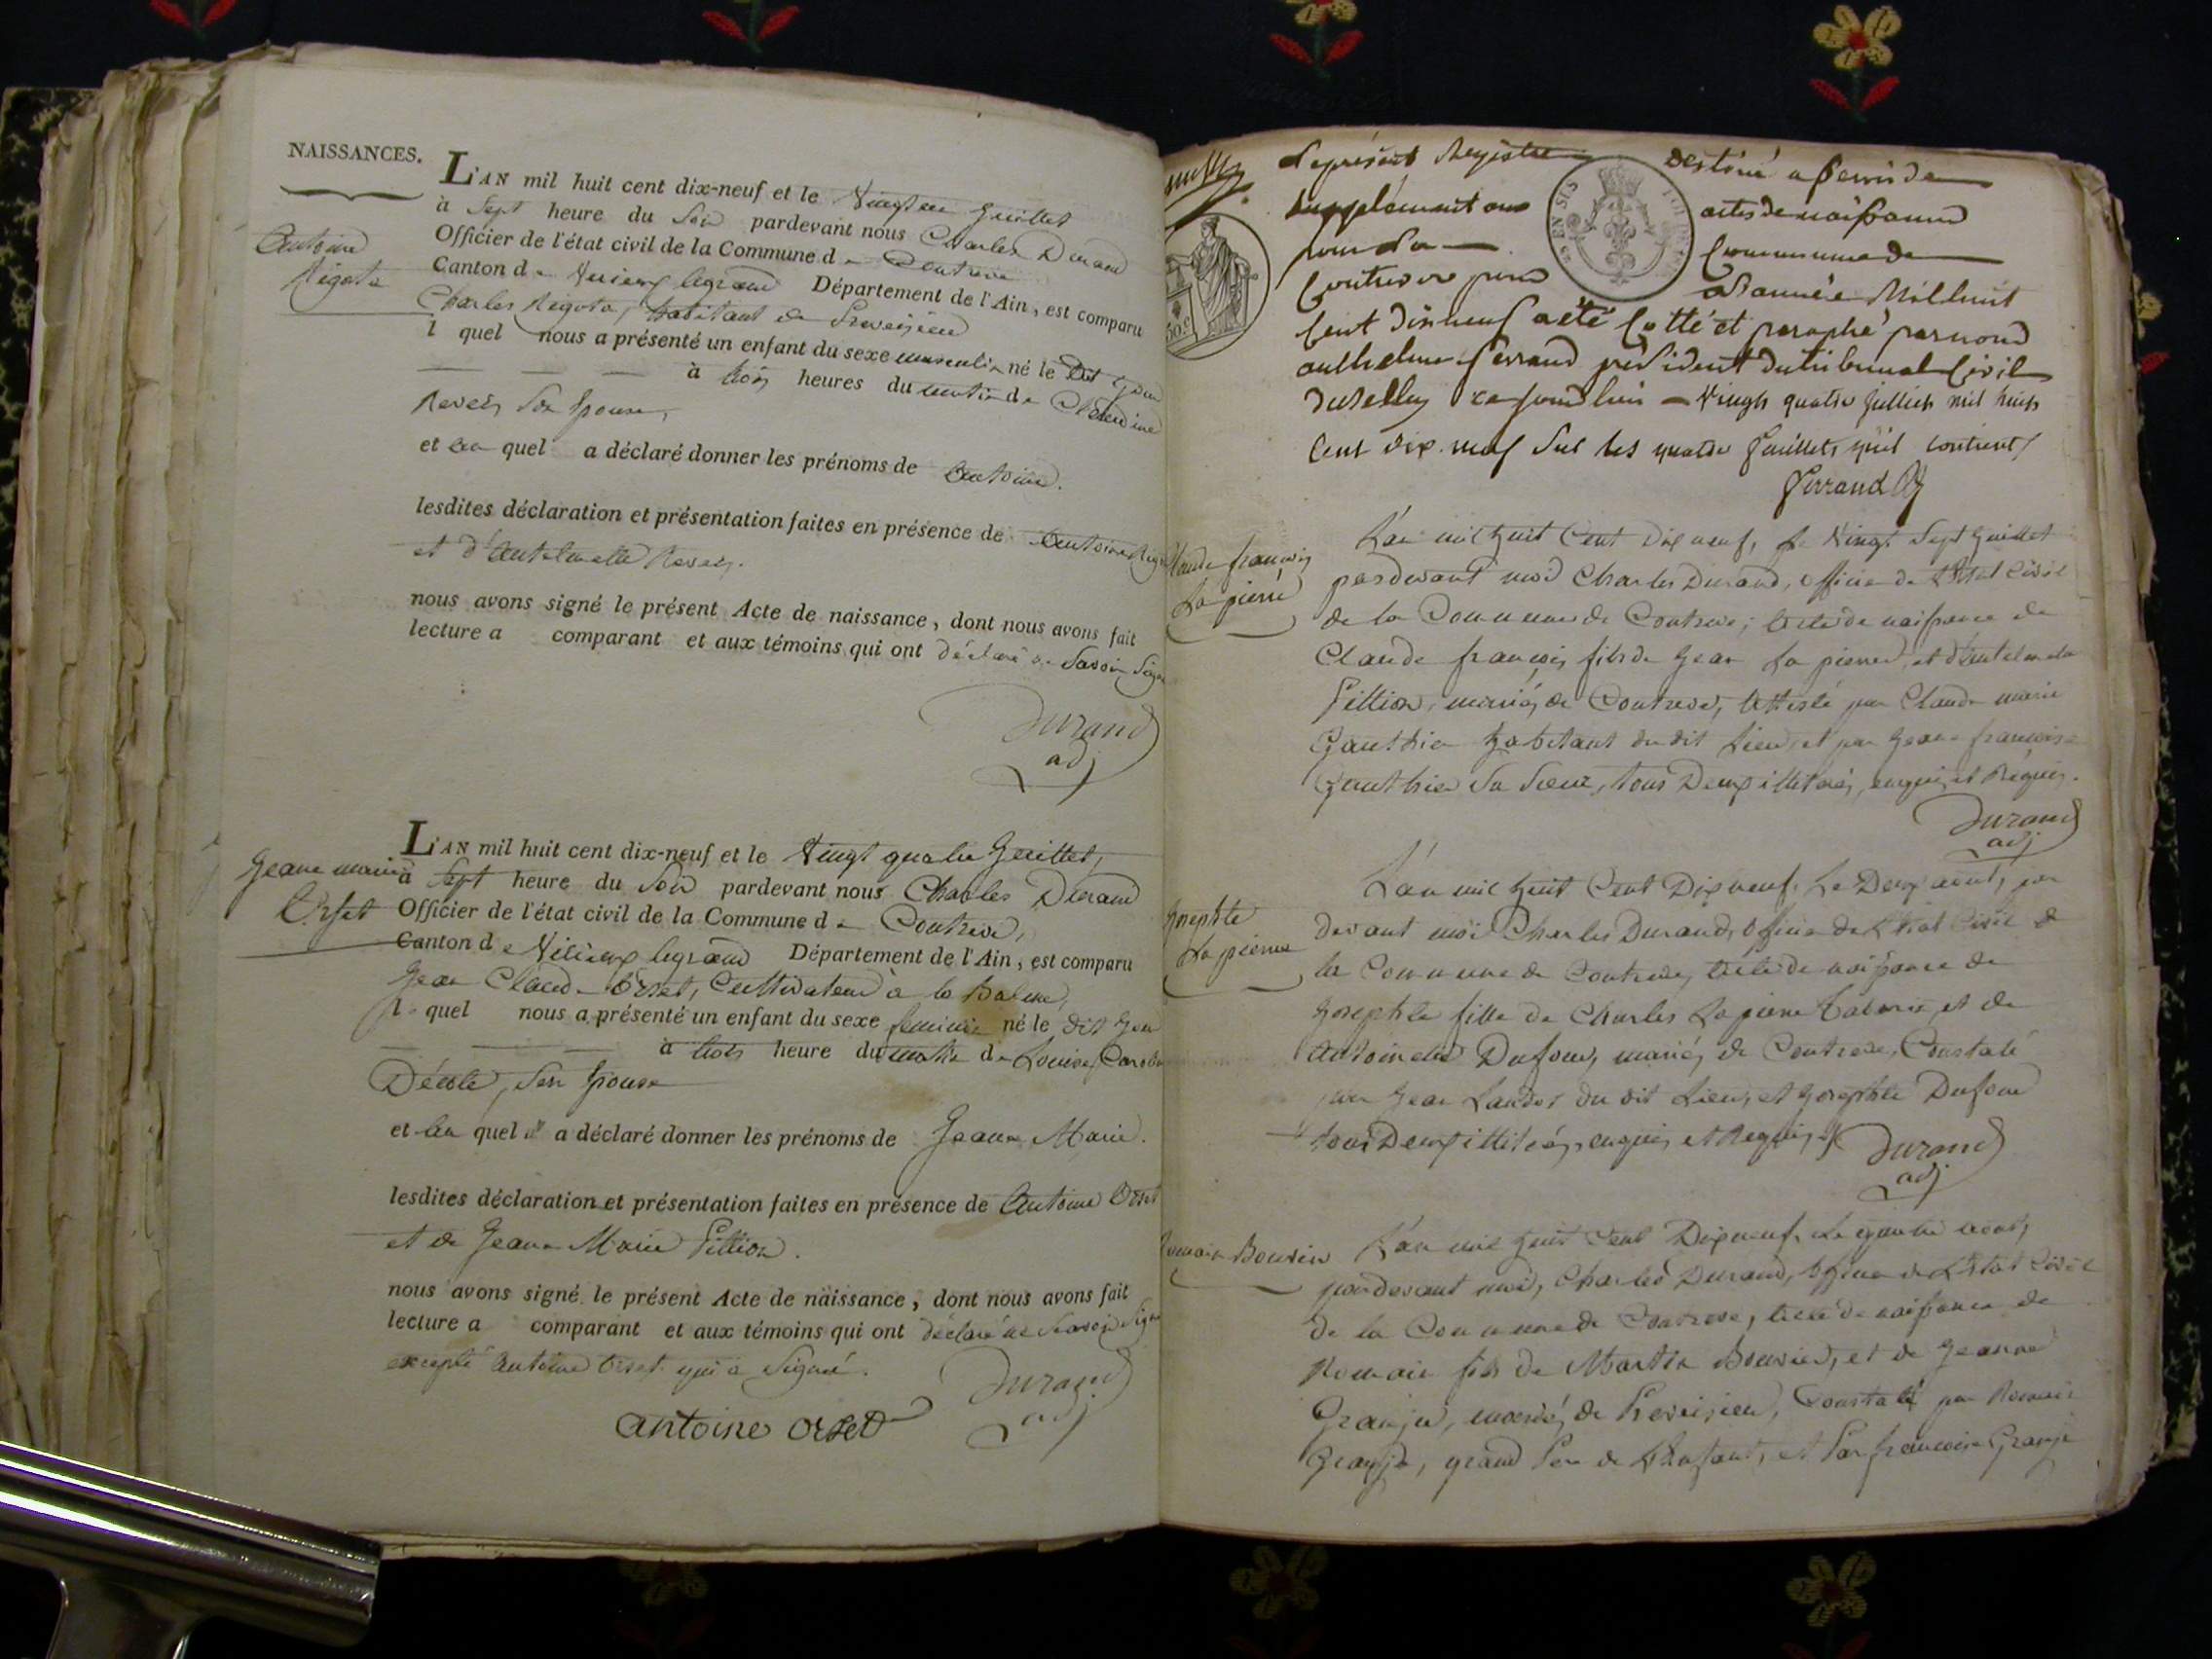 NAISSANCES.
L'AN mil huit cent dix-neuf et le Vingt un Juillet
à Sept heure du Soir pardevant nous Charles Durand
Officier de l'état civil de la Commune d e Contrevoz
Antoine
Rigota
Canton d e Virieux legrand Département de l'Ain, est comparu
Charles Rigota, habitant de Preveizieu
l quel nous a présenté un enfant du sexe masculin né le dit jour
à trois heures du matin de Claudine
Revein Son Epouse,
et au quel a déclaré donner les prénoms de Antoine.
lesdites déclaration et présentation faites en présence de Antoine
et d'Antelmette Revein.
nous avons signé le présent Acte de naissance, dont nous avons fait
lecture a comparant et aux témoins qui ont déclaré ne Savoir Signer
Durand
adj
L'AN mil huit cent dix-neuf et le Vingt quatre Juillet,
Jeane marie
Orset
à Sept heure du Soir pardevant nous Charles Durand
Officier de l'état civil de la Commune d e Contrevoz,
Canton d e Virieux legrand Département de l'Ain, est comparu
Jean Claude Orset, Cultivateur à la Balme,
l e quel nous a présenté un enfant du sexe feminin né le dit jour
à trois heure du matin de Louise
son Epouse
et au quel il a déclaré donner les prénoms de Jeane Marie.
lesdites déclaration et présentation faites en présence de Antoine Orset
et de Jeane Marie Pittion.
nous avons signé le présent Acte de naissance, dont nous avons fait
lecture a comparant et aux témoins qui ont déclaré ne Savoir Signer
excepté Antoine Orset qui a Signé.
Durand
adj
antoine orset
le présent Registre destiné a servir de
supplément aux actes de naissance
pour la Commune de
Contrevoz pour l'année Mil huit
Cent dix neuf a été Cotté et paraphé par nous
anthelme ferrand président du tribunal Civil
de Belley ce jourd'hui Vingt quatre juillet mil huit
Cent dix neuf Sur les quatre feuillets qu'il contient
Ferrand
Claude françois
La pierre
L'an mil huit Cent Dix neuf, le Vingt Sept Juillet
pardevant moi Charles Durand, officier de L'Etat Civil
de la Commune de Contrevoz, acte de naissance de
Claude françois fils de Jean La pierre, et d'Antelmette
Pittion, mariés de Contrevoz, attesté par Claude marie
Gauthier habitant du dit Lieu, et par Jeane françoise
Gauthier Sa Sœur, tous Deux illitérés, enquis et Requis.
Durand
adj
Josephte
La pierre
L'an mil huit Cent Dix neuf, Le Deux août, par
devant moi Charles Durand, officier de L'Etat Civil de
la Commune de Contrevoz, acte de naissance de
Josephte fille de Charles La pierre et de
Antoinette Dufour, mariés de Contrevoz, Constaté
par Jean Landoz du dit Lieu, et Josephte Dufour
tous Deux illitérés, enquis et Requis
Durand
adj
Romain Bouvier
L'an mil huit Cent Dix neuf, Le quinze août,
pardevant moi, Charles Durand, officier de L'Etat Civil
de la Commune de Contrevoz, acte de naissance de
Romain fils de Martin Bouvier, et de Jeanne
Granje, mariés de Preveizieu, Constaté par Romain
Granje, grand Pere de L'Enfant, et Par françoise Granje
EN SUS
50 c